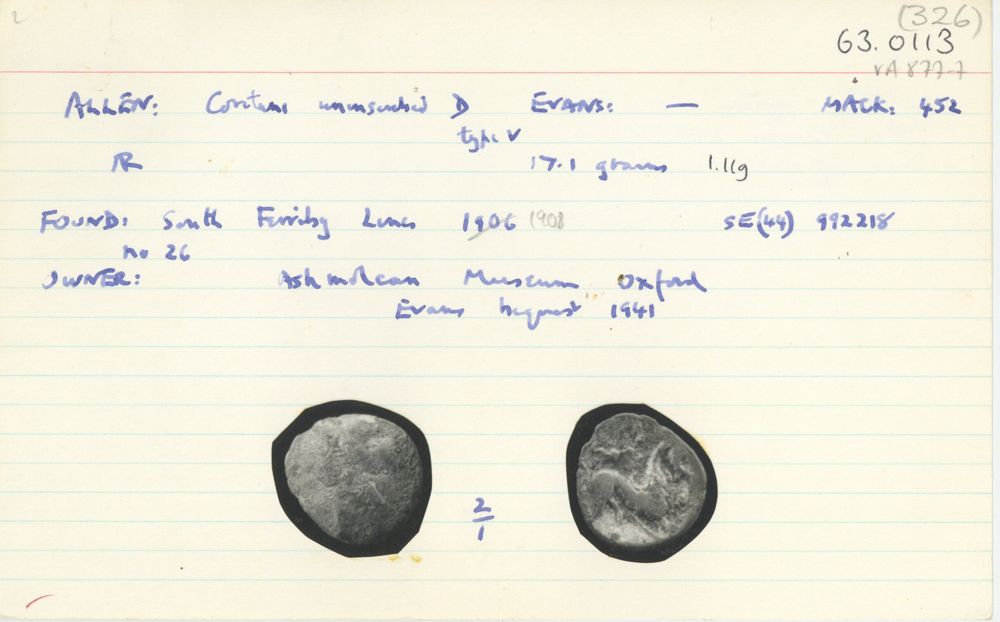 2
(326)
63.0113
VA 877-7
ALLEN: Coritani uninscribed D EVANS: — MACK: 452
type V
AR 17.1 grains 1.11g
FOUND: South Ferriby Lincs 1906 1908 SE(44) 992218
no 26
OWNER: Ashmolean Museum Oxford
Evans bequest 1941
2/1